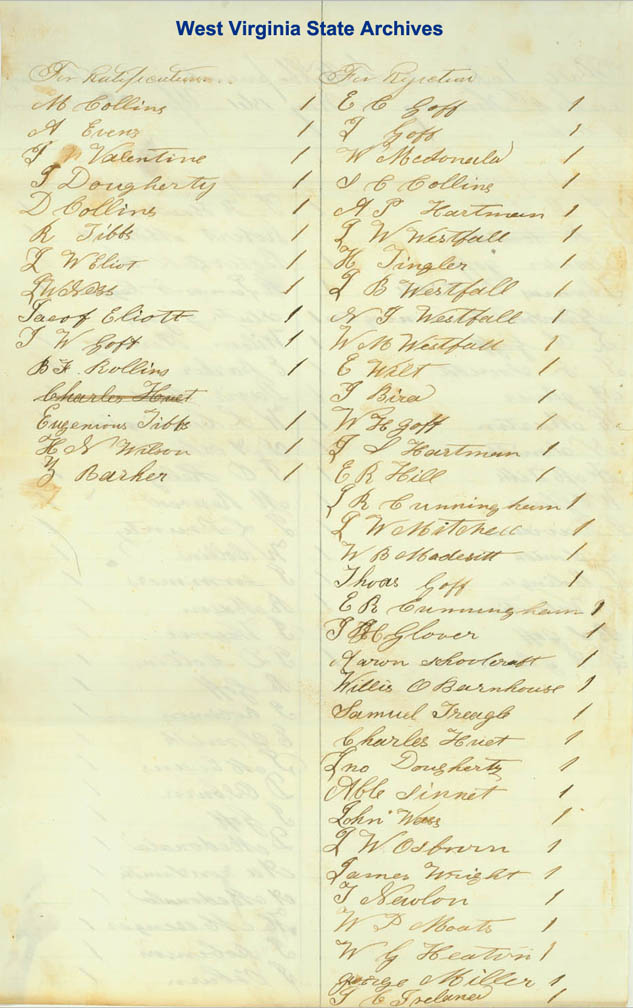 West Virginia State Archives
For Ratification
M Collins 1
A Evens 1
Valentine 1
Dougherty 1
D Collins 1
R Tibbs 1
W Eliot 1
1
Jacof Eliott 1
T W Goff 1
B F. Rollins 1
Charles Huet
Eugenious Tibbs 1
H N Wilson 1
Barker 1
For Rejection
E C Goff 1
Goff 1
W Mcdoneld 1
S C Collins 1
A P Hartman 1
W Westfall 1
H Tingler 1
B Westfall 1
N J Westfall 1
W M Westfall 1
E Wilt 1
Bird 1
W H Goff 1
S Hartman 1
E R Hill 1
R Cunningham 1
W Mitchell 1
W B Madesitt 1
Thoas Goff 1
E R Cunningham 1
Glover 1
Aaron Schoolcraft 1
Willis O Barnhouse 1
Samuel Treagle 1
Charles Huet 1
Jno Dougherty 1
Able Sinnet 1
John Wass 1
W Osburn 1
James Wright 1
Newlon 1
W P Moats 1
W G Heaton 1
George Miller 1
1